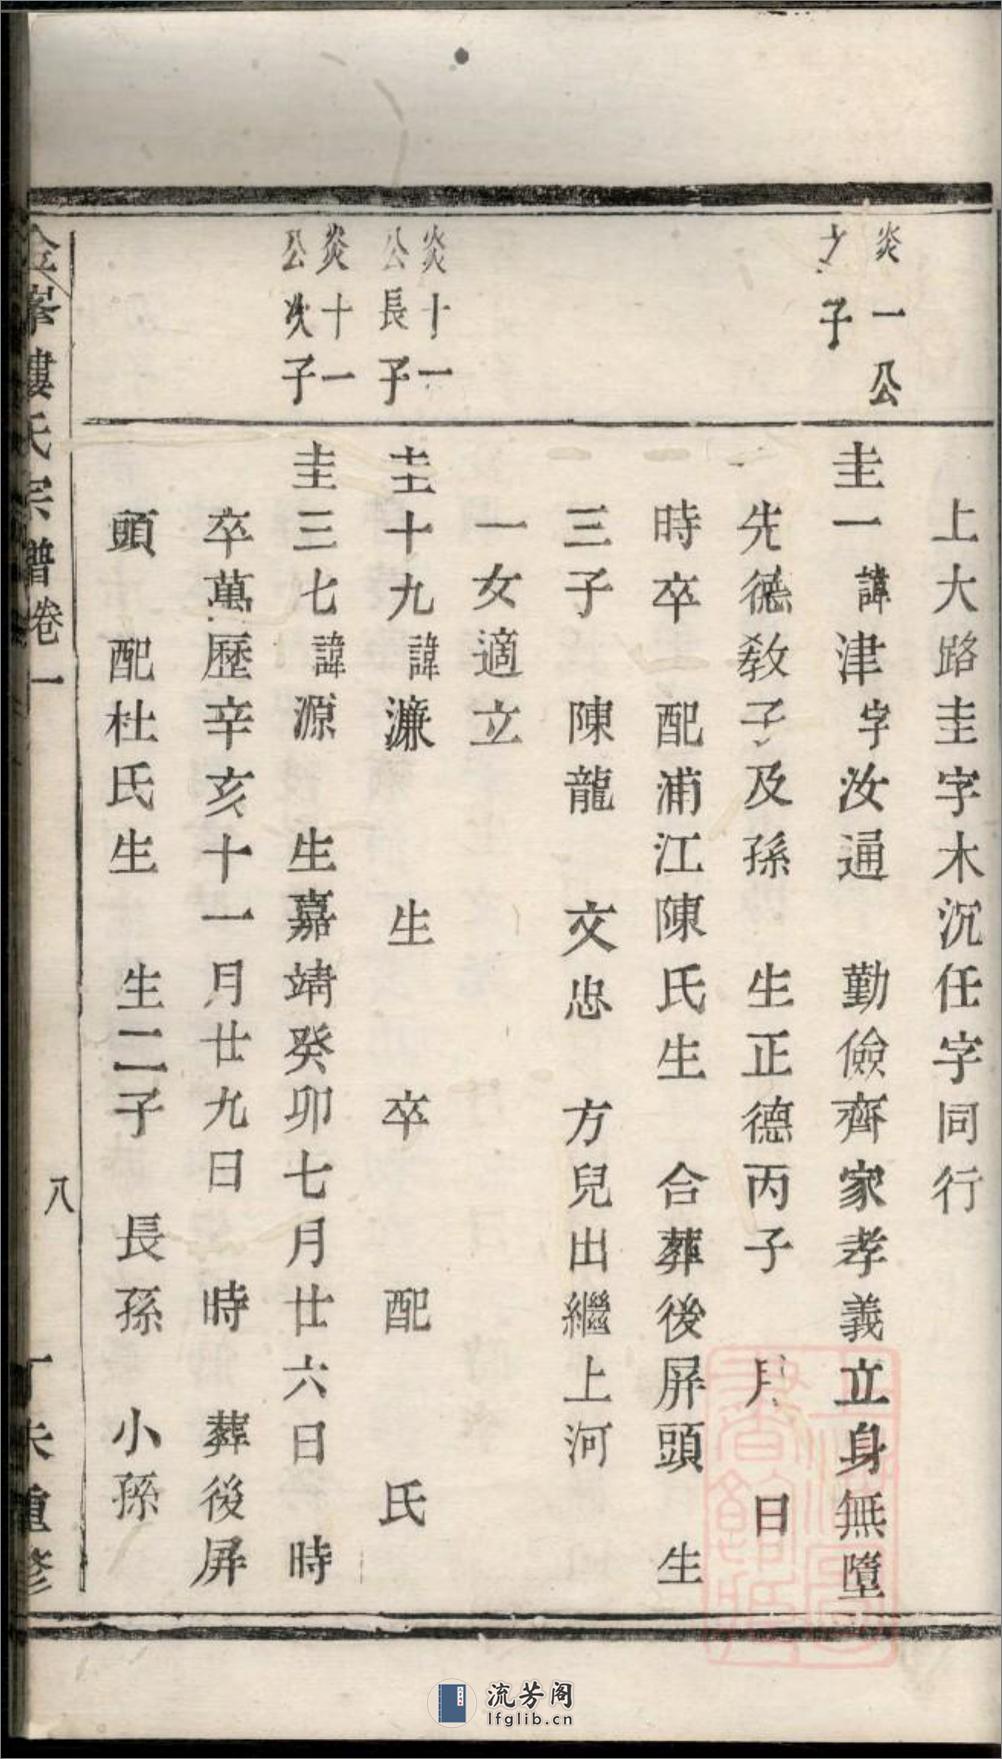 上大路圭字木沉任字同行
炎一公
之子
圭一諱津字汝通 勤儉齊家孝義立身無墮
先德教子及孫 生正德丙子 月 日
時卒 配浦江陳氏生 合葬後屏頭 生
三子 陳龍 文忠 方兒出繼上河
一女適立
炎十一
公長子
圭十九諱濂 生 卒 配 氏
炎十一
公次子
圭三七諱源 生嘉靖癸卯七月廿六日 時
卒萬歷辛亥十一月廿九日 時 葬後屏
頭 配杜氏生 生二子 長孫 小孫
金峯樓氏宗譜卷一 八 丁未重修
流芳阁
lfglib.cn